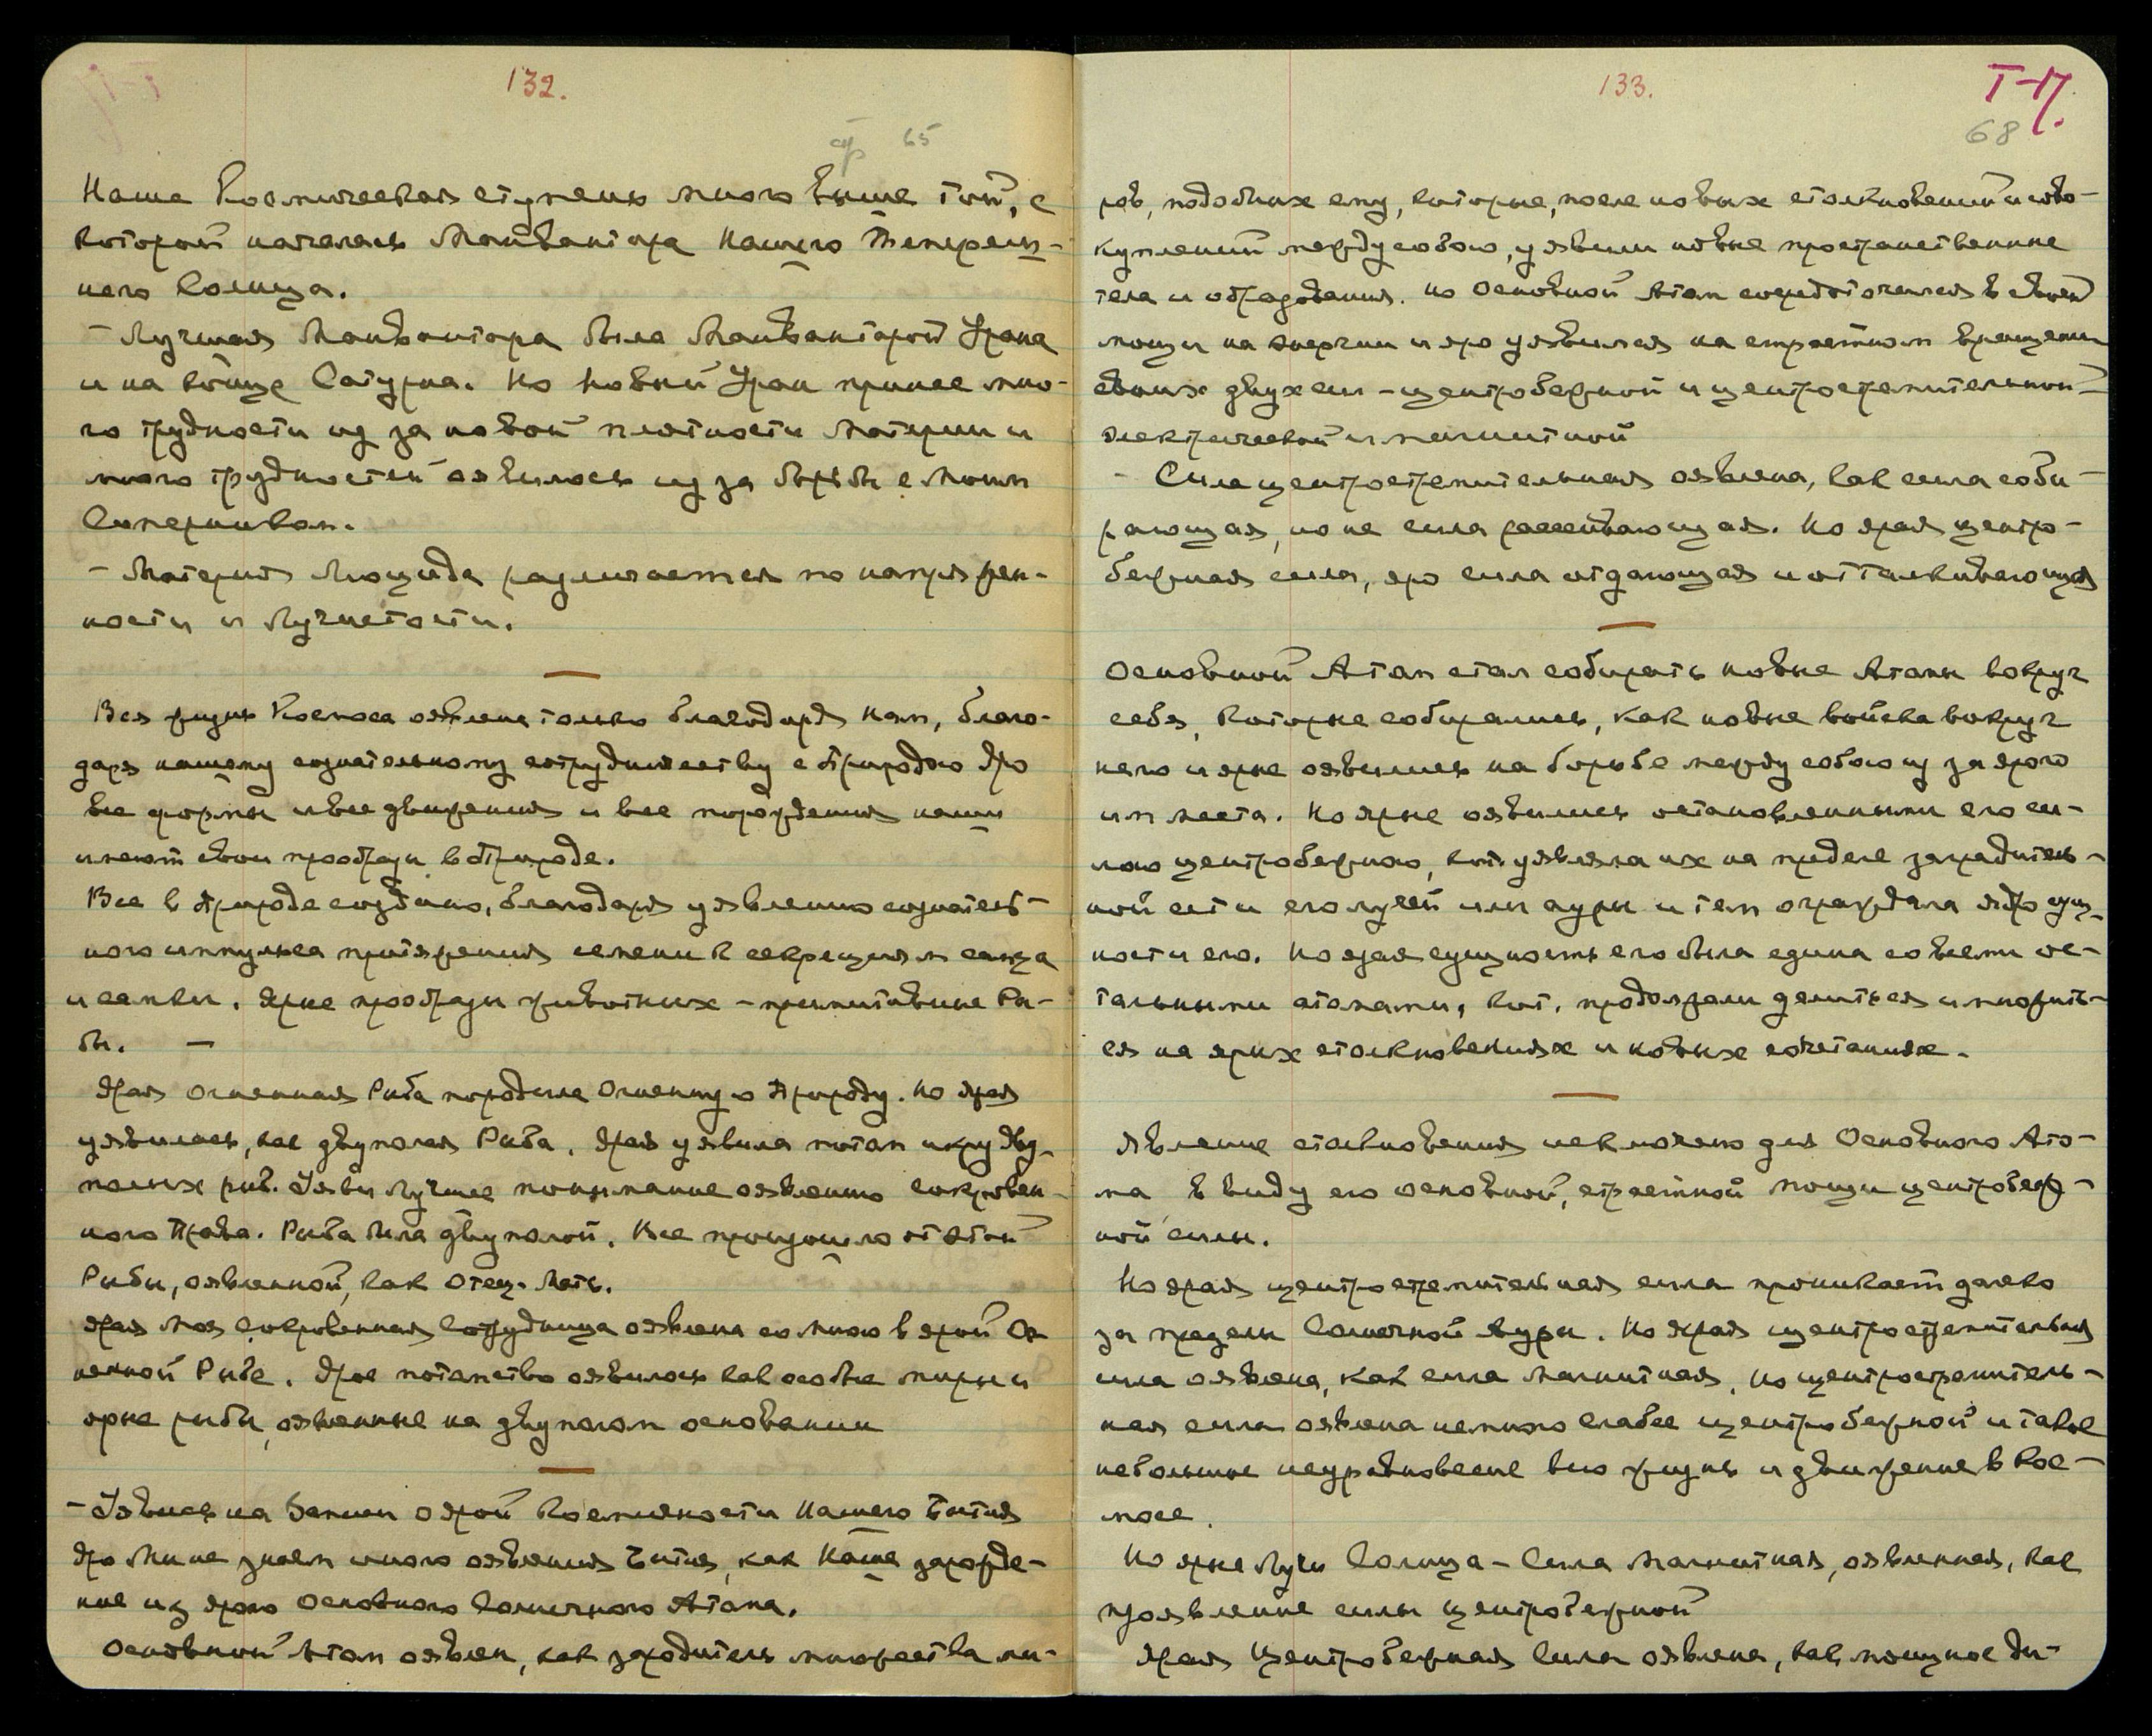 132.
стр 65
Наша Космическая ступень много выше той, с
которой началась Манвантара Нашего Теvпереш-
него Солнца.
- Лучшая Манвантара была Манвантарой Урана
и на конце Сатурна. Но Новый Уран принес мно-
го трудности из за новой плотности Материи и
много трудностей оявилось из за борьбы с Моим
Соперником.
- Материя Люцида различается по напряжен-
ности и Лучистости.
Вся жизнь Космоса оявлена только благодаря Нам, благо-
даря нашему сознательному сотрудничеству с Природою Яро
все формы и все движения и все порождения наши
имеют свои прообразы в Природе.
Все в Природе создано, благодаря уявлению сознатель-
ного импульса притяжения семени к секрециям самца
и самки. Ярые прообразы животных - примитивные Ры-
бы. —
Ярая Огненная Рыба породила Огненную Природу. Но Ярая
уявилась, как двуполая Рыба. Ярая уявила потом икру дву-
полых рыб. Уяви лучшее понимание оявлению сокровен-
ного Права. Рыба была двуполой. Все произошло от этой
Рыбы, оявленной, как Отец-Мать.
Ярая Моя Сокровенная Сотрудница оявлена со мною в ярой Ог-
ненной Рыбе. Ярое потомство оявилось как особые миры и
ярые рыбы, оявленные на двуполом основании
- Уявись на Записи о ярой Космичности Нашего Бытия
Яро Мы не знаем иного оявления Бытия, как Наше зарожде-
ние из ярого Основного Солнечного Атома.
Основной Атом оявлен, как зародитель множества ми-
133.
Т-17.
68
ров, подобных ему, которые, после новых столкновений и сово-
куплений между собою, уявили новые пространственные
тела и образования. но Основной Атом сосредоточился в своей
мощи на энергии и яро уявился на страстном вращении
своих двух сил - центробежной и центростремительной -
электрической и магнитной
- Сила центростремительная оявлена, как сила соби-
рающая, но не сила рассеивающая. Но ярая центро-
бежная сила, яро сила отдающая и отталкивающая
Основной Атом стал собирать новые Атомы вокруг
себя, которые собирались, как новые войска вокруг
него и ярые оявились на борьбе между собою из за ярого
им места. Но ярые оявились остановленными его си-
лою центробежною, кот. уявляла их на пределе заградитель-
ной сети его лучей или ауры и тем ограждала Ядро сущ-
ности его. Но ярая сущность его была едина со всеми ос-
тальными атомами, кот. продолжали делиться и множить-
ся на ярых столкновениях и новых сочетаниях.
Явление столкновения исключено для Основного Ато-
ма в виду его основной, страстной мощи центробеж-
ной силы.
Но ярая центростремительная сила проникает далеко
за пределы Солнечной Ауры. Но ярая центростремительная
сила оявлена, как сила магнитная, но центростремитель-
ная сила оявлена немного слабее центробежной и такое
небольшое неуравновесие вью жизнь и движение в Кос-
мосе.
Но ярые Лучи Солнца - Сила Магнитная, оявленная, как
проявление силы центробежной
Ярая Центробежная Сила оявлена, как мощное ды-